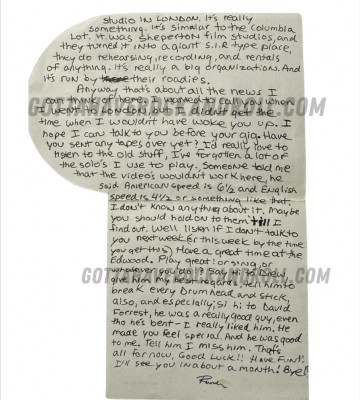 Studio in London. It's really
something. It's simalar to the Columbia
Lot. It was Sheperton film Studios, and
they turned it into a giant S.I.R type place,
they do rehearsing, recording, and rentals
of anything. It's really a big organization. And
it's run by their roadies.
Anyway that's about all the news I
can think of here. I wanted to call you when
I went to London, but I didn't get the
time when I wouldn't have woke you up. I
hope I can talk to you before your gig. Have
you sent any tapes over yet? I'd really love to
listen to the old stuff, I've forgotten a lot of
the solo's I use to play. Someone told me
that the video's wouldn't work here, he
said American speed is 6½ and English
speed is 4½ or something like that,
I don't know anything about it. Maybe
you should hold on to them till I
find out. Well listen if I don't talk to
you next week (or this week by the time
you get this) Have a great time at the
Edwood. Play great! or sing, or
whatever you do! Say Hi to Drew
give him my best regards, tell him to
break every Drum head and stick,
also, and especially, Si hi to David
Forrest, he was a really good guy, even
tho he's bent - I really liked him. He
made you feel special. And he was good
to me. Tell him I miss him. That's
all for now, Good Luck!! Have Fun!
I'll see you in about a month! Bye!!
Randi
GOTTAHAVEROCKANDROLL.COM
GOTTAHAVEROCKANDROLL.COM